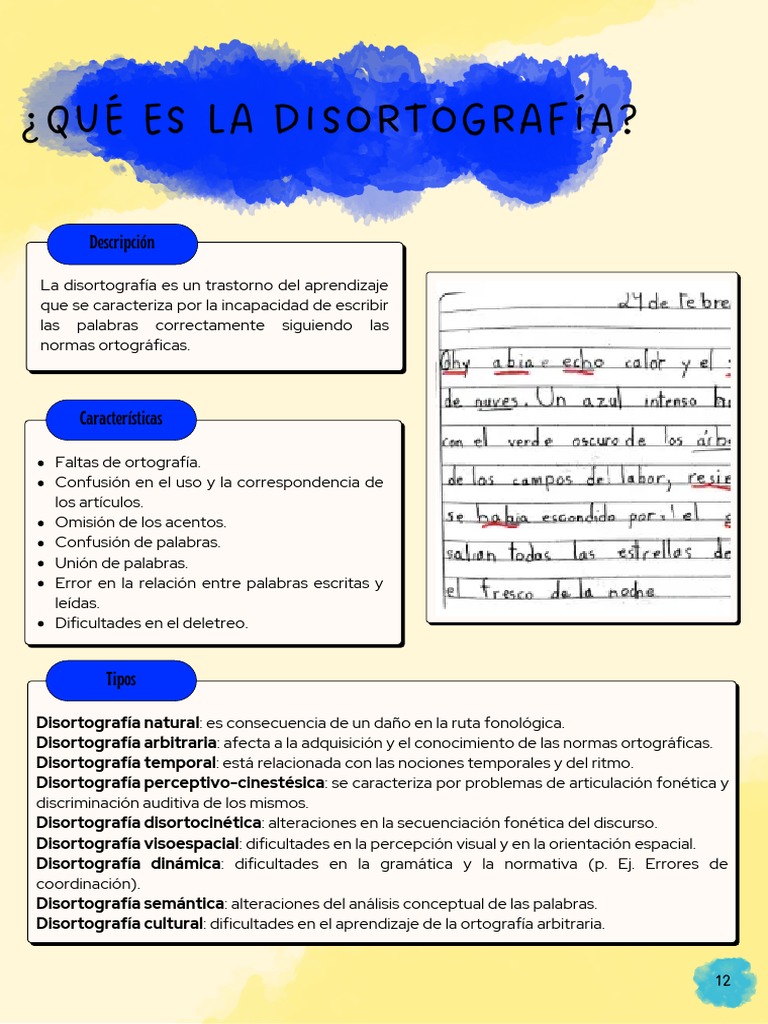 ¿QUÉ ES LA DISORTOGRAFÍA?
Descripción
La disortografía es un trastorno del aprendizaje
que se caracteriza por la incapacidad de escribir
las palabras correctamente siguiendo las
normas ortográficas.
24 de Febre
Ohy abia e echo calor y el
de nuves. Un azul intenso
con el verde oscuro de los árb
de los campos del labor, resie
se habia escondido por el
salian todas las estrellas de
el fresco de la noche
Características
Faltas de ortografía.
Confusión en el uso y la correspondencia de
los artículos.
Omisión de los acentos.
Confusión de palabras.
Unión de palabras.
Error en la relación entre palabras escritas y
leídas.
Dificultades en el deletreo.
Tipos
Disortografía natural: es consecuencia de un daño en la ruta fonológica.
Disortografía arbitraria: afecta a la adquisición y el conocimiento de las normas ortográficas.
Disortografía temporal: está relacionada con las nociones temporales y del ritmo.
Disortografía perceptivo-cinestésica: se caracteriza por problemas de articulación fonética y
discriminación auditiva de los mismos.
Disortografía disortocinética: alteraciones en la secuenciación fonética del discurso.
Disortografía visoespacial: dificultades en la percepción visual y en la orientación espacial.
Disortografía dinámica: dificultades en la gramática y la normativa (p. Ej. Errores de
coordinación).
Disortografía semántica: alteraciones del análisis conceptual de las palabras.
Disortografía cultural: dificultades en el aprendizaje de la ortografía arbitraria.
12